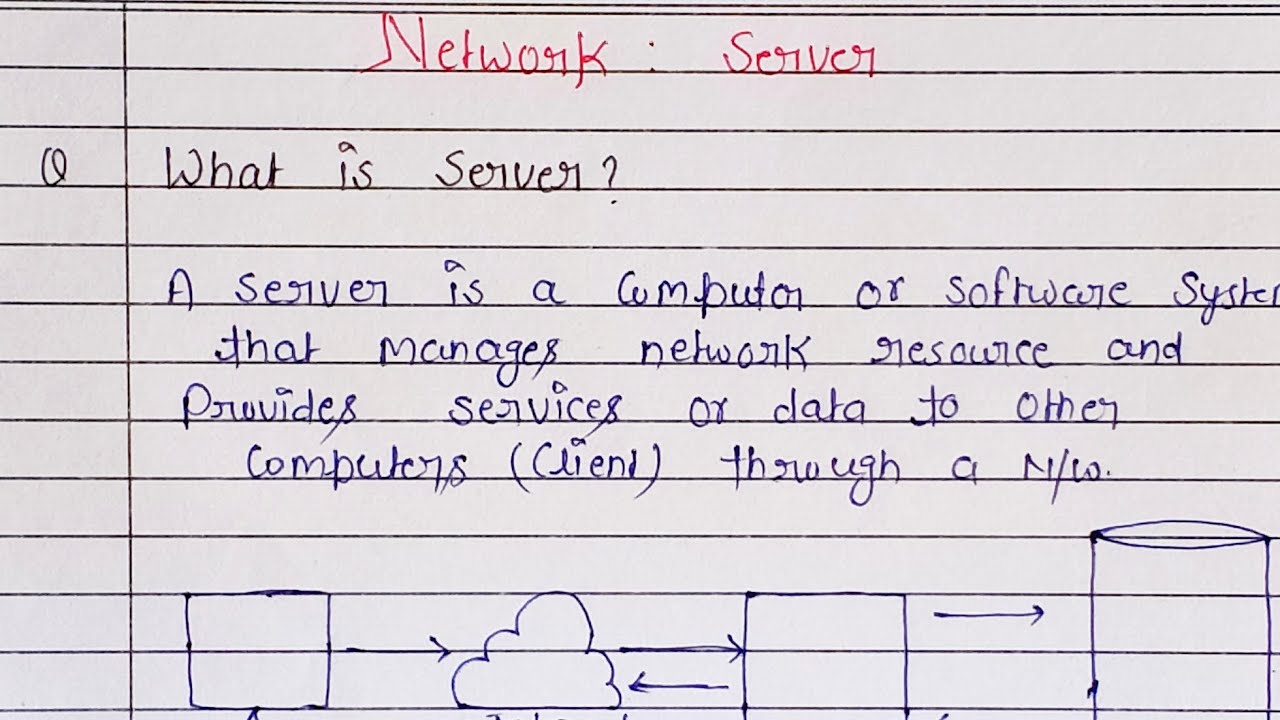 Network : Server
Q What is Server?
A server is a Computer or Software Syste
that manages network resource and
Provides services or data to other
Computers (Client) through a N/w.